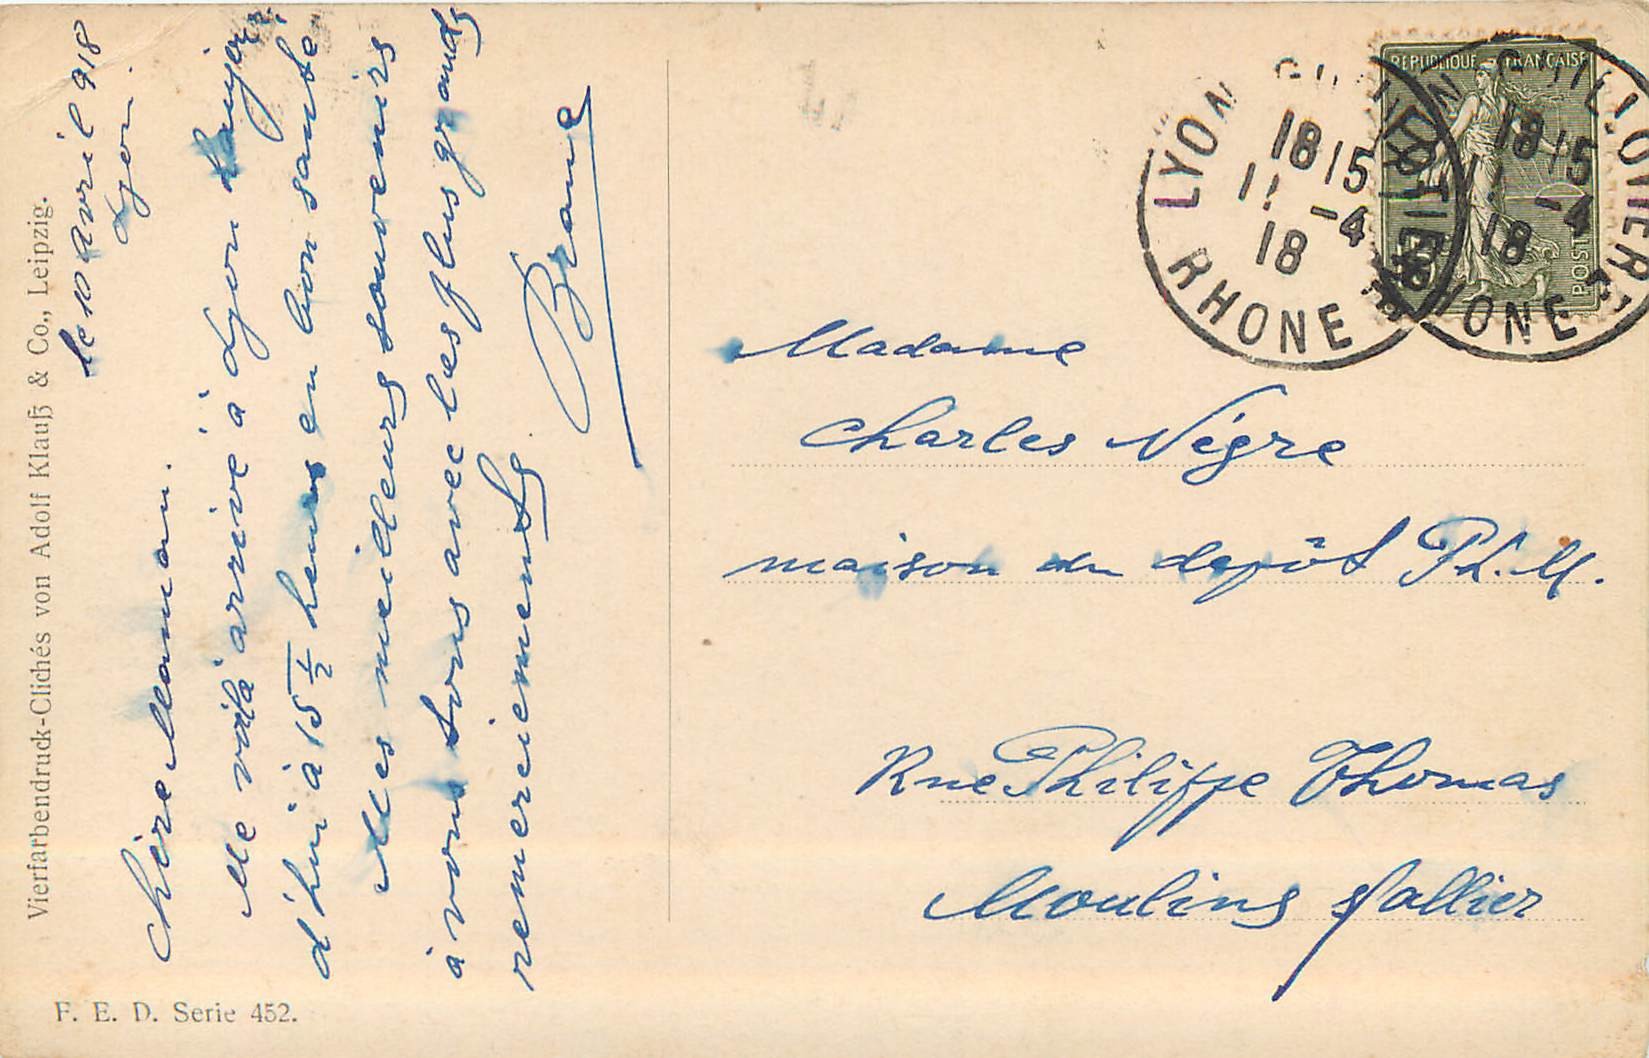 Vierfarbendruck-Clichés von Adolf Klauß & Co., Leipzig.
F. E. D. Serie 452.
le 10 avril 918
Lyon.
Chère Maman.
Me voila arrivé à Lyon haujour
d'hui à 15 ½ heures en bon sante
Mes meilleurs souvenirs
à vous tous avec les plus grands
remerciements
Brane
RÉPUBLIQUE FRANÇAISE
POST
LYON
18 15
11 -4
18
RHONE
18 15
-4
18
Madame
Charles Négre
maison du depôt Ph. M.
Rue Philippe Thomas
Moulins s/allier